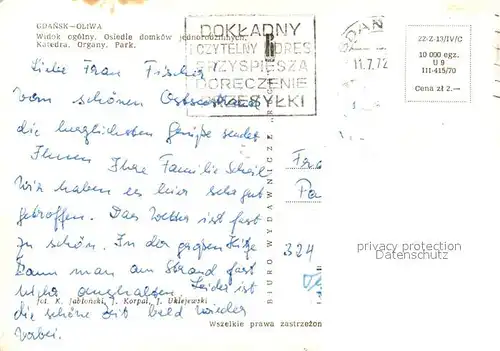 GDAŃSK-OLIWA
Widok ogólny. Osiedle domków jednorodzinnych.
Katedra. Organy. Park.
DOKŁADNY
I CZYTELNY ADRES
PRZYSPIESZA
DORĘCZENIE
PRZESYŁKI
GDAŃ
11.7.72
22-Z-13/IV/C
10 000 egz.
U 9
III-415/70
Cena zł 2.—
Liebe Frau Fischer
Vom schönen Ostseestrand
die herzlichsten Grüße sendet
Ihnen Ihre Familie
Wir haben es hier sehr gut
getroffen. Das Wetter ist fast
zu schön. In der großen Hitze
kann man am Strand fast
nicht aushalten. Leider ist
die schöne Zeit bald wieder
vorbei.
Fra
Fa
324
BIURO WYDAWNICZE
fot. K. Jabłoński, J. Korpal, J. Uklejewski
Wszelkie prawa zastrzeżon
privacy protection
Datenschutz